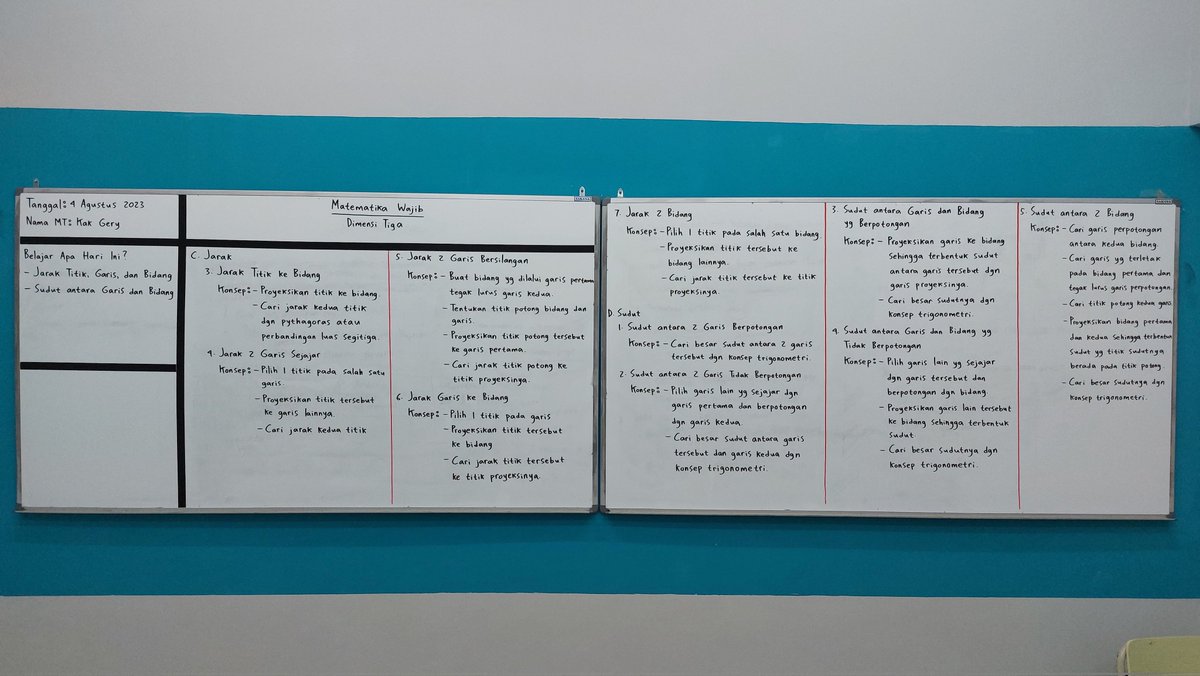 Tanggal: 4 Agustus 2023
Nama MT: Kak Gery
Matematika Wajib
Dimensi Tiga
Belajar Apa Hari Ini?
- Jarak Titik, Garis, dan Bidang
- Sudut antara Garis dan Bidang
C. Jarak
3. Jarak Titik ke Bidang
Konsep: - Proyeksikan titik ke bidang.
- Cari jarak kedua titik
dgn pythagoras atau
perbandingan luas segitiga.
4. Jarak 2 Garis Sejajar
Konsep: - Pilih 1 titik pada salah satu
garis.
- Proyeksikan titik tersebut
ke garis lainnya.
- Cari jarak kedua titik
5. Jarak 2 Garis Bersilangan
Konsep: - Buat bidang yg dilalui garis pertama
tegak lurus garis kedua.
- Tentukan titik potong bidang dan
garis.
- Proyeksikan titik potong tersebut
ke garis pertama.
- Cari jarak titik potong ke
titik proyeksinya.
6. Jarak Garis ke Bidang
Konsep: - Pilih 1 titik pada garis
- Proyeksikan titik tersebut
ke bidang
- Cari jarak titik tersebut
ke titik proyeksinya.
7. Jarak 2 Bidang
Konsep: - Pilih 1 titik pada salah satu bidang
- Proyeksikan titik tersebut ke
bidang lainnya.
- Cari jarak titik tersebut ke titik
proyeksinya.
D. Sudut
1. Sudut antara 2 Garis Berpotongan
Konsep: - Cari besar sudut antara 2 garis
tersebut dgn konsep trigonometri.
2. Sudut antara 2 Garis Tidak Berpotongan
Konsep: - Pilih garis lain yg sejajar dgn
garis pertama dan berpotongan
dgn garis kedua.
- Cari besar sudut antara garis
tersebut dan garis kedua dgn
konsep trigonometri.
3. Sudut antara Garis dan Bidang
yg Berpotongan
Konsep: - Proyeksikan garis ke bidang
Sehingga terbentuk sudut
antara garis tersebut dgn
garis proyeksinya.
- Cari besar sudutnya dgn
konsep trigonometri.
4. Sudut antara Garis dan Bidang yg
Tidak Berpotongan
Konsep: - Pilih garis lain yg sejajar
dgn garis tersebut dan
berpotongan dgn bidang.
- Proyeksikan garis lain tersebut
ke bidang sehingga terbentuk
sudut
- Cari besar sudutnya dgn
konsep trigonometri.
5. Sudut antara 2 Bidang
Konsep: - Cari garis perpotongan
antara kedua bidang.
- Cari garis yg terletak
pada bidang pertama dan
tegak lurus garis perpotongan.
- Cari titik potong kedua garis.
- Proyeksikan bidang pertama
dan kedua sehingga terbentuk
sudut yg titik sudutnya
berada pada titik potong.
- Cari besar sudutnya dgn
konsep trigonometri.